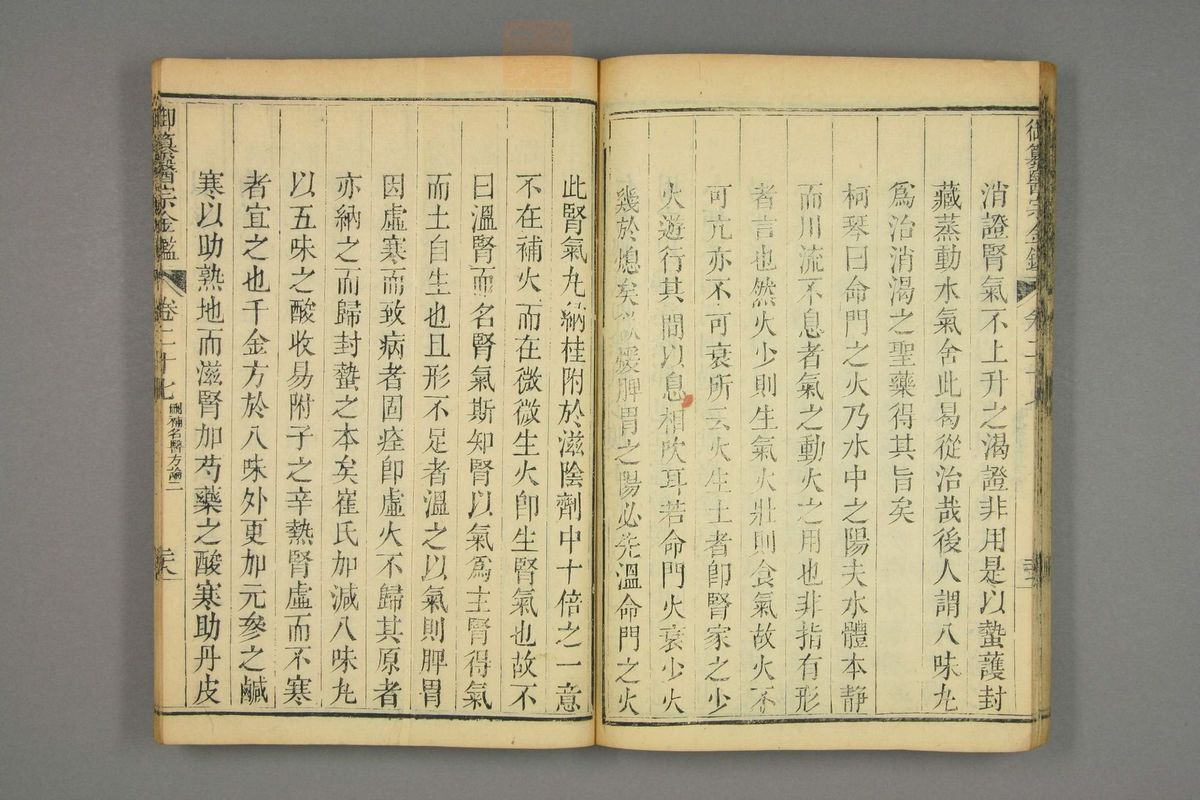 御纂醫宗金鑑
消證腎氣不上升之渴證非用是以蟄護封
藏蒸動水氣舍此曷從治哉後人謂八味丸
爲治消渴之聖藥得其旨矣
柯琴曰命門之火乃水中之陽夫水體本靜
而川流不息者氣之動火之用也非指有形
者言也然火少則生氣火壯則食氣故火不
可亢亦不可衰所云火生土者卽腎家之少
火遊行其間以息相吹耳若命門火衰少火
幾於熄矣欲暖脾胃之陽必先溫命門之火
此腎氣丸納桂附於滋陰劑中十倍之一意
不在補火而在微微生火卽生腎氣也故不
曰溫腎而名腎氣斯知腎以氣爲主腎得氣
而土自生也且形不足者溫之以氣則脾胃
因虛寒而致病者固痊卽虛火不歸其原者
亦納之而歸封蟄之本矣崔氏加減八味丸
以五味之酸收易附子之辛熱腎虛而不寒
者宜之也千金方於八味外更加元參之鹹
寒以助熟地而滋腎加芍藥之酸寒助丹皮
御纂醫宗金鑑 卷二十七 刪補名醫方論二